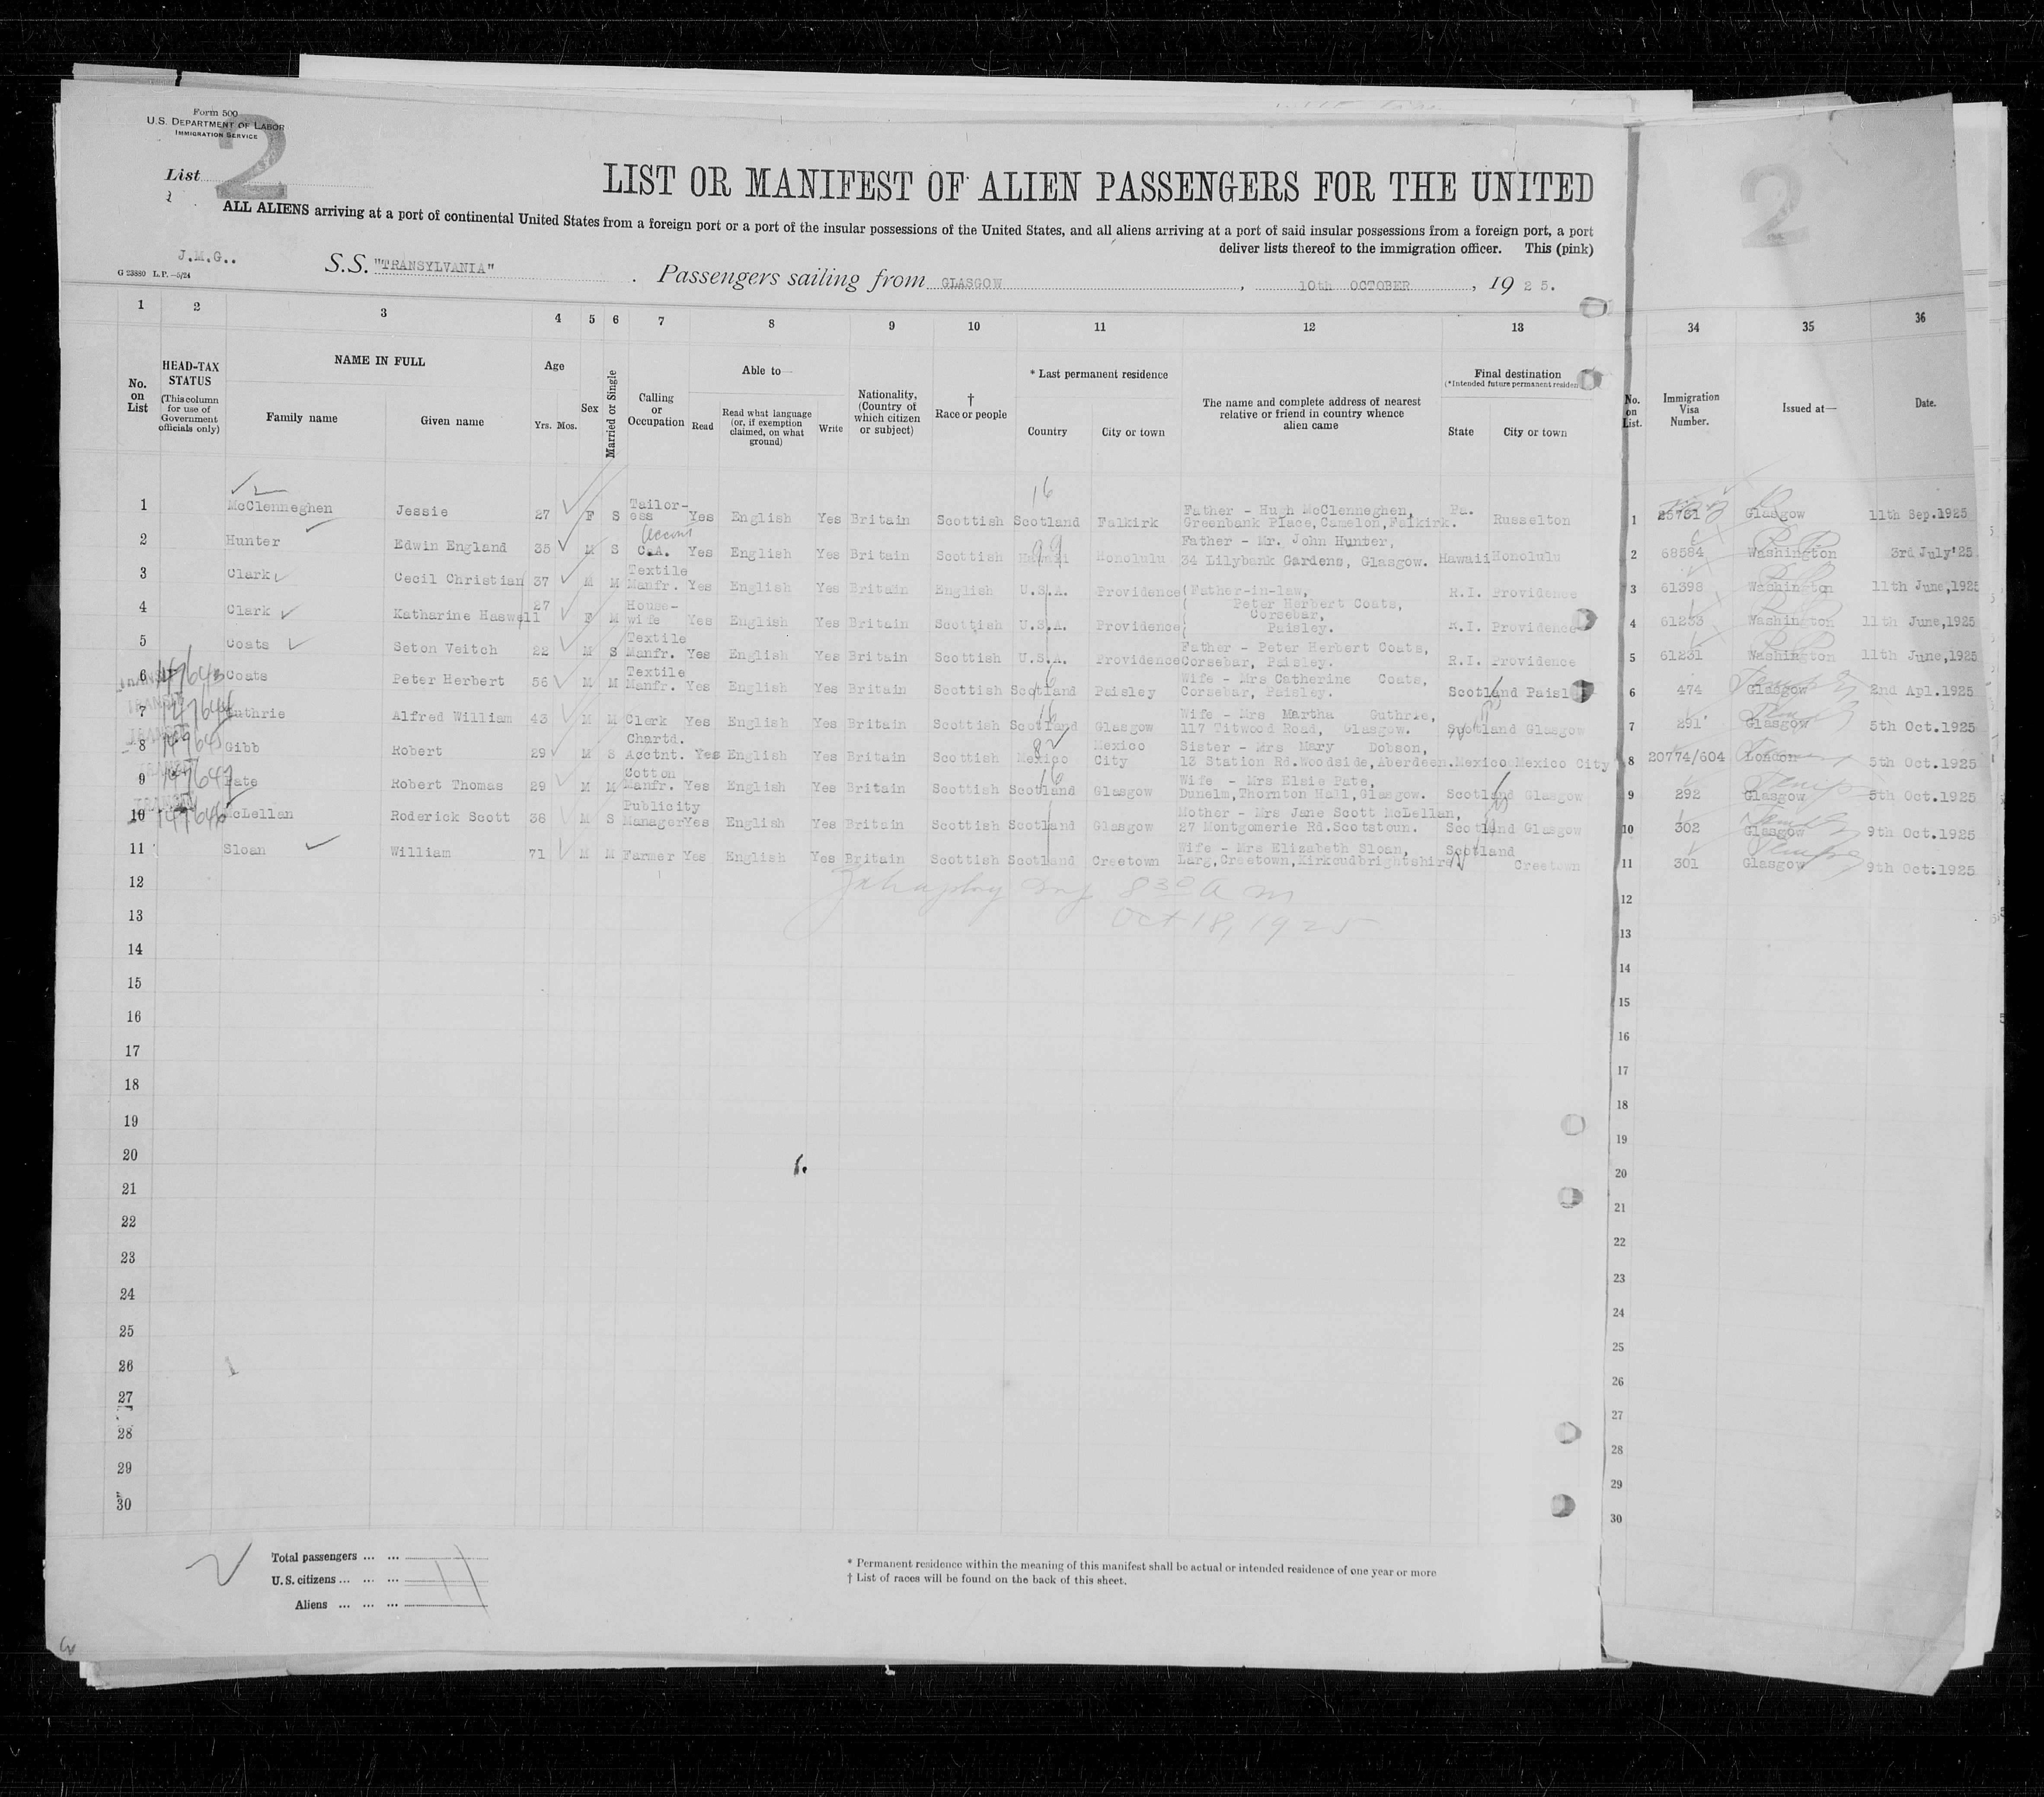 Form 500
U.S. DEPARTMENT OF LABOR
IMMIGRATION SERVICE
2
List
LIST OR MANIFEST OF ALIEN PASSENGERS FOR THE UNITED
ALL ALIENS arriving at a port of continental United States from a foreign port or a port of the insular possessions of the United States, and all aliens arriving at a port of said insular possessions from a foreign port, a port
deliver lists thereof to the immigration officer. This (pink)
J.M.G..
G 23880 L.P.—5/24
S.S. "TRANSYLVANIA" . Passengers sailing from GLASGOW , 10th OCTOBER , 19 2 5.
1 2 3 4 5 6 7 8 9 10 11 12 13 34 35 36
No. on List
HEAD-TAX STATUS (This column for use of Government officials only)
NAME IN FULL
Family name
Given name
Age
Yrs. Mos.
Sex
Married or Single
Calling or Occupation
Able to—
Read
Read what language (or, if exemption claimed, on what ground)
Write
Nationality, (Country of which citizen or subject)
† Race or people
* Last permanent residence
Country
City or town
The name and complete address of nearest relative or friend in country whence alien came
Final destination
(*Intended future permanent residen
State
City or town
No. on List.
Immigration Visa Number.
Issued at—
Date.
16
1 McClenneghen Jessie 27 F S Tailor-ess Yes English Yes Britain Scottish Scotland Falkirk Father - Hugh McClenneghen, Greenbank Place, Camelon, Falkirk. Pa. Russelton 1 25731 Glasgow 11th Sep.1925
2 Hunter Edwin England 35 M S C.A. Yes English Yes Britain Scottish Hawaii Honolulu Father - Mr. John Hunter, 34 Lilybank Gardens, Glasgow. Hawaii Honolulu 2 68584 Washington 3rd July'25
3 Clark Cecil Christian 37 M M Textile Manfr. Yes English Yes Britain English U.S.A. Providence (Father-in-law, R.I. Providence 3 61398 Washington 11th June,1925
4 Clark Katharine Haswell 27 F M House-wife Yes English Yes Britain Scottish U.S.A. Providence Peter Herbert Coats, Corsebar, Paisley. R.I. Providence 4 61233 Washington 11th June,1925
5 Coats Seton Veitch 22 M S Textile Manfr. Yes English Yes Britain Scottish U.S.A. Providence Father - Peter Herbert Coats, Corsebar, Paisley. R.I. Providence 5 61231 Washington 11th June,1925
6 Coats Peter Herbert 56 M M Textile Manfr. Yes English Yes Britain Scottish Scotland Paisley Wife - Mrs Catherine Coats, Corsebar, Paisley. Scotland Paisl 6 474 Glasgow 2nd Apl.1925
7 Guthrie Alfred William 43 M M Clerk Yes English Yes Britain Scottish Scotland Glasgow Wife - Mrs Martha Guthrie, 117 Titwood Road, Glasgow. Scotland Glasgow 7 291 Glasgow 5th Oct.1925
8 Gibb Robert 29 M S Chartd. Acctnt. Yes English Yes Britain Scottish Mexico Mexico City Sister - Mrs Mary Dobson, 13 Station Rd.Woodside,Aberdeen. Mexico Mexico City 8 20774/604 London 5th Oct.1925
9 Pate Robert Thomas 29 M M Cotton Manfr. Yes English Yes Britain Scottish Scotland Glasgow Wife - Mrs Elsie Pate, Dunelm,Thornton Hall,Glasgow. Scotland Glasgow 9 292 Glasgow 5th Oct.1925
10 McLellan Roderick Scott 38 M S Publicity Manager Yes English Yes Britain Scottish Scotland Glasgow Mother - Mrs Jane Scott McLellan, 27 Montgomerie Rd.Scotstoun. Scotland Glasgow 10 302 Glasgow 9th Oct.1925
11 Sloan William 71 M M Farmer Yes English Yes Britain Scottish Scotland Creetown Wife - Mrs Elizabeth Sloan, Larg,Creetown,Kirkcudbrightshire Scotland Creetown 11 301 Glasgow 9th Oct.1925
12 8 30 A m 12
13 Oct 18, 1925 13
14 14
15 15
16 16
17 17
18 18
19 19
20 20
21 21
22 22
23 23
24 24
25 25
26 26
27 27
28 28
29 29
30 30
Total passengers ... ...
U.S. citizens ... ... ... 11
Aliens ... ... ...
* Permanent residence within the meaning of this manifest shall be actual or intended residence of one year or more
† List of races will be found on the back of this sheet.